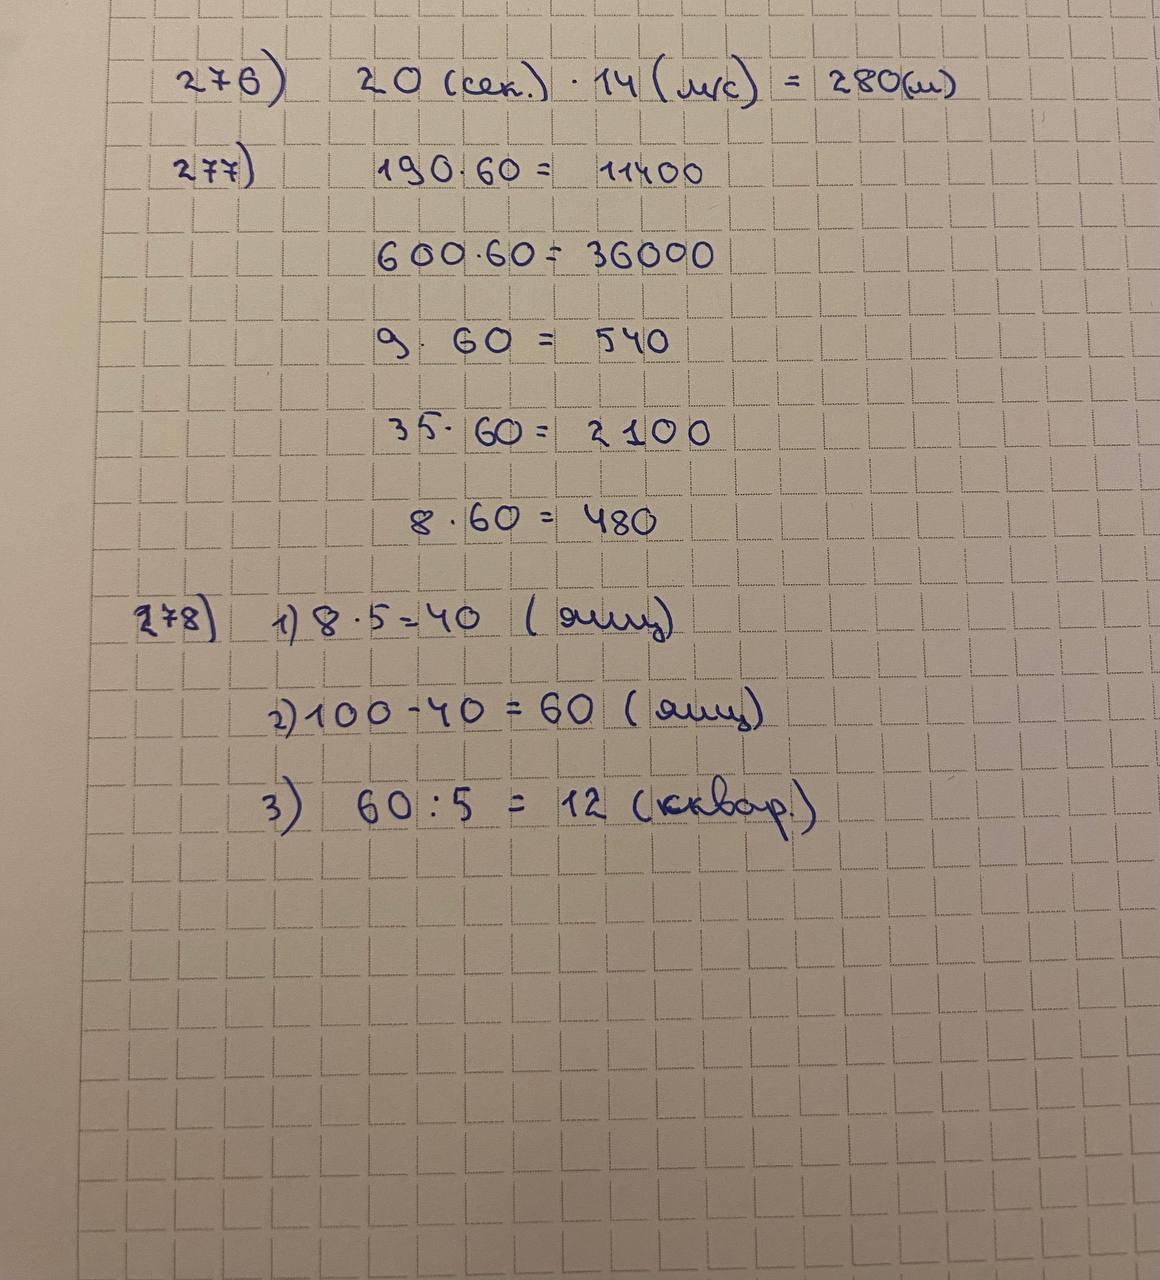 276) 20 (сек.) · 14 (м/с) = 280(м)
277) 190·60 = 11400
600·60 = 36000
9·60 = 540
35·60 = 2100
8·60 = 480
278) 1) 8·5=40 (ящ)
2) 100-40 = 60 (ящ)
3) 60:5 = 12 (кквар.)